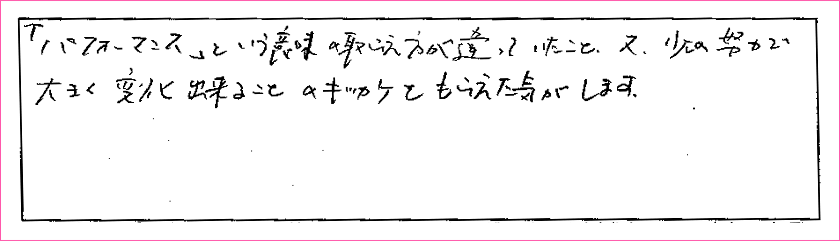 「パフォーマンス」という意味の取らえ方が違っていたこと、又、少しの努力で
大きく変化出来ることのキッカケをもらえた気がします。